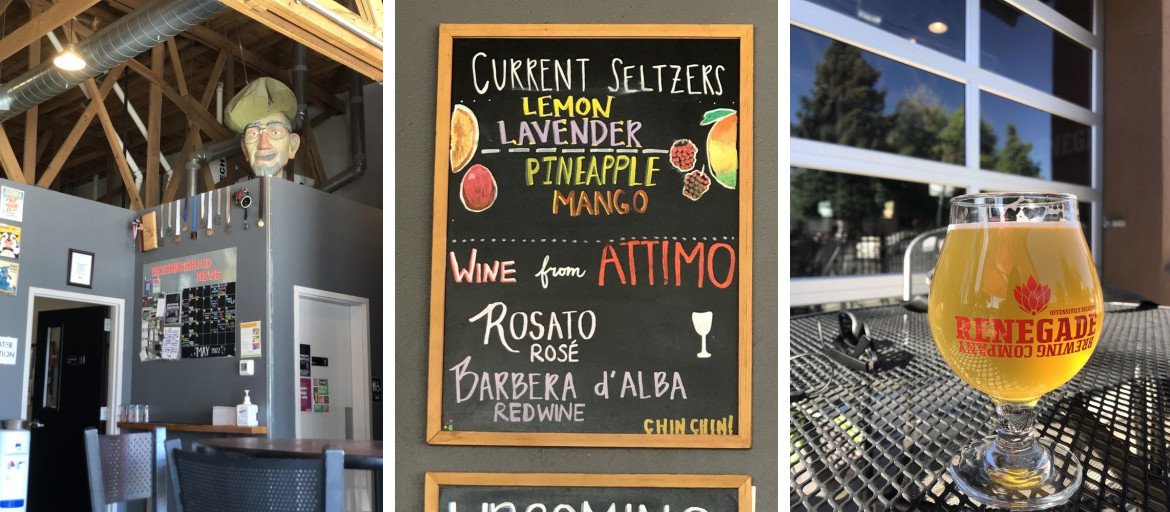 NEIGHBORHOOD
NEWS
MAY 2022
CURRENT SELTZERS
LEMON
LAVENDER
PINEAPPLE
MANGO
WINE from ATTIMO
ROSATO
ROSÉ
BARBERA d'ALBA
RED WINE
CHIN CHIN!
UPCOMING
OFFENSIVELY DELICIOUS
RENEGADE
BREWING COMPANY